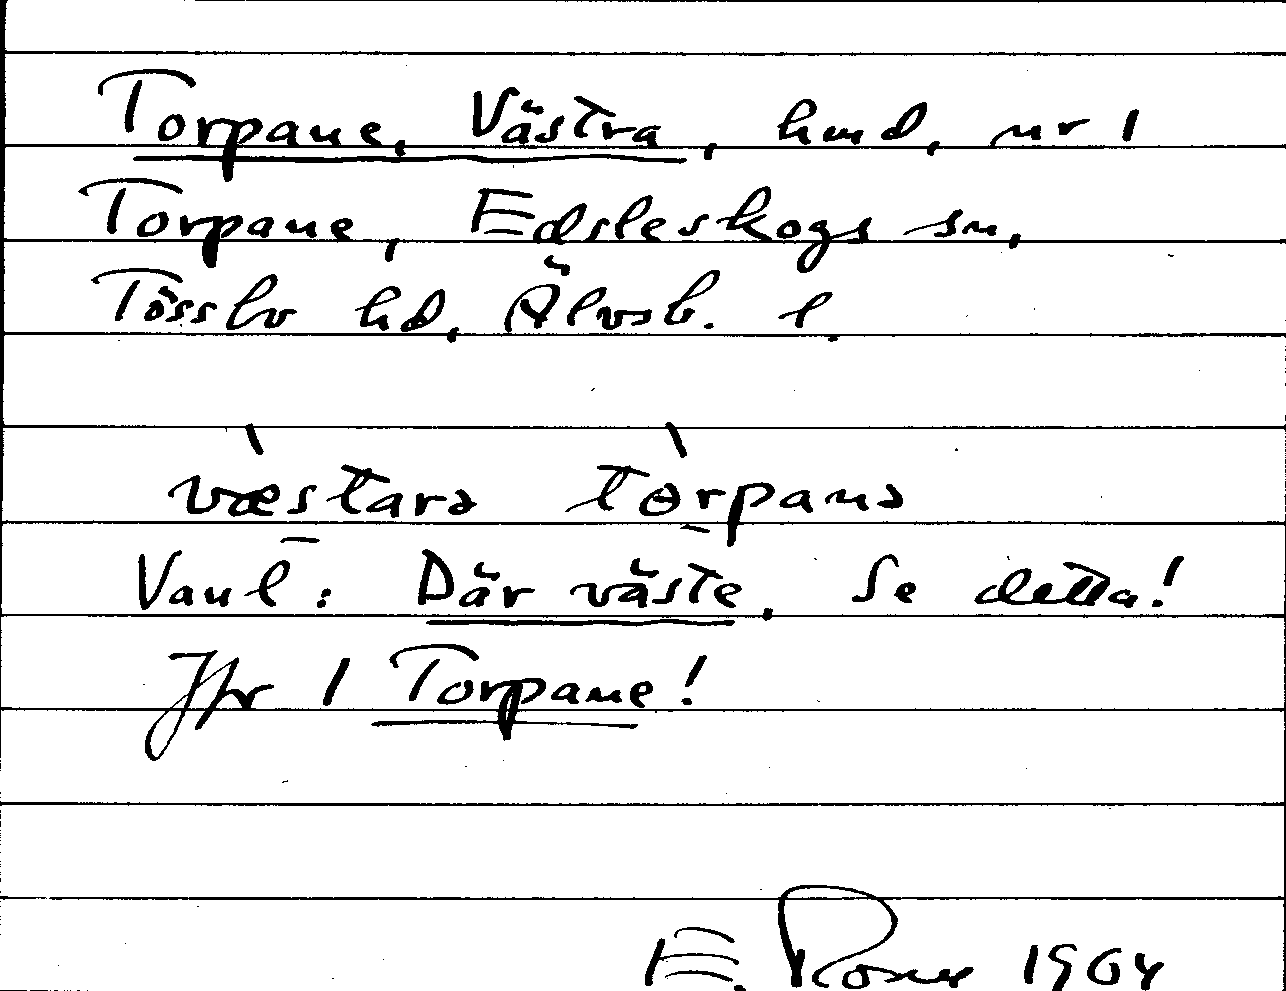 Torpane, Västra, hmd, nr 1
Torpane, Edsleskogs sn,
Tössbo hd, Älvsb. l.
væstarə tòrpanə
Vanl: Där väste. Se detta!
Jfr 1 Torpane!
E. Rosner 1964